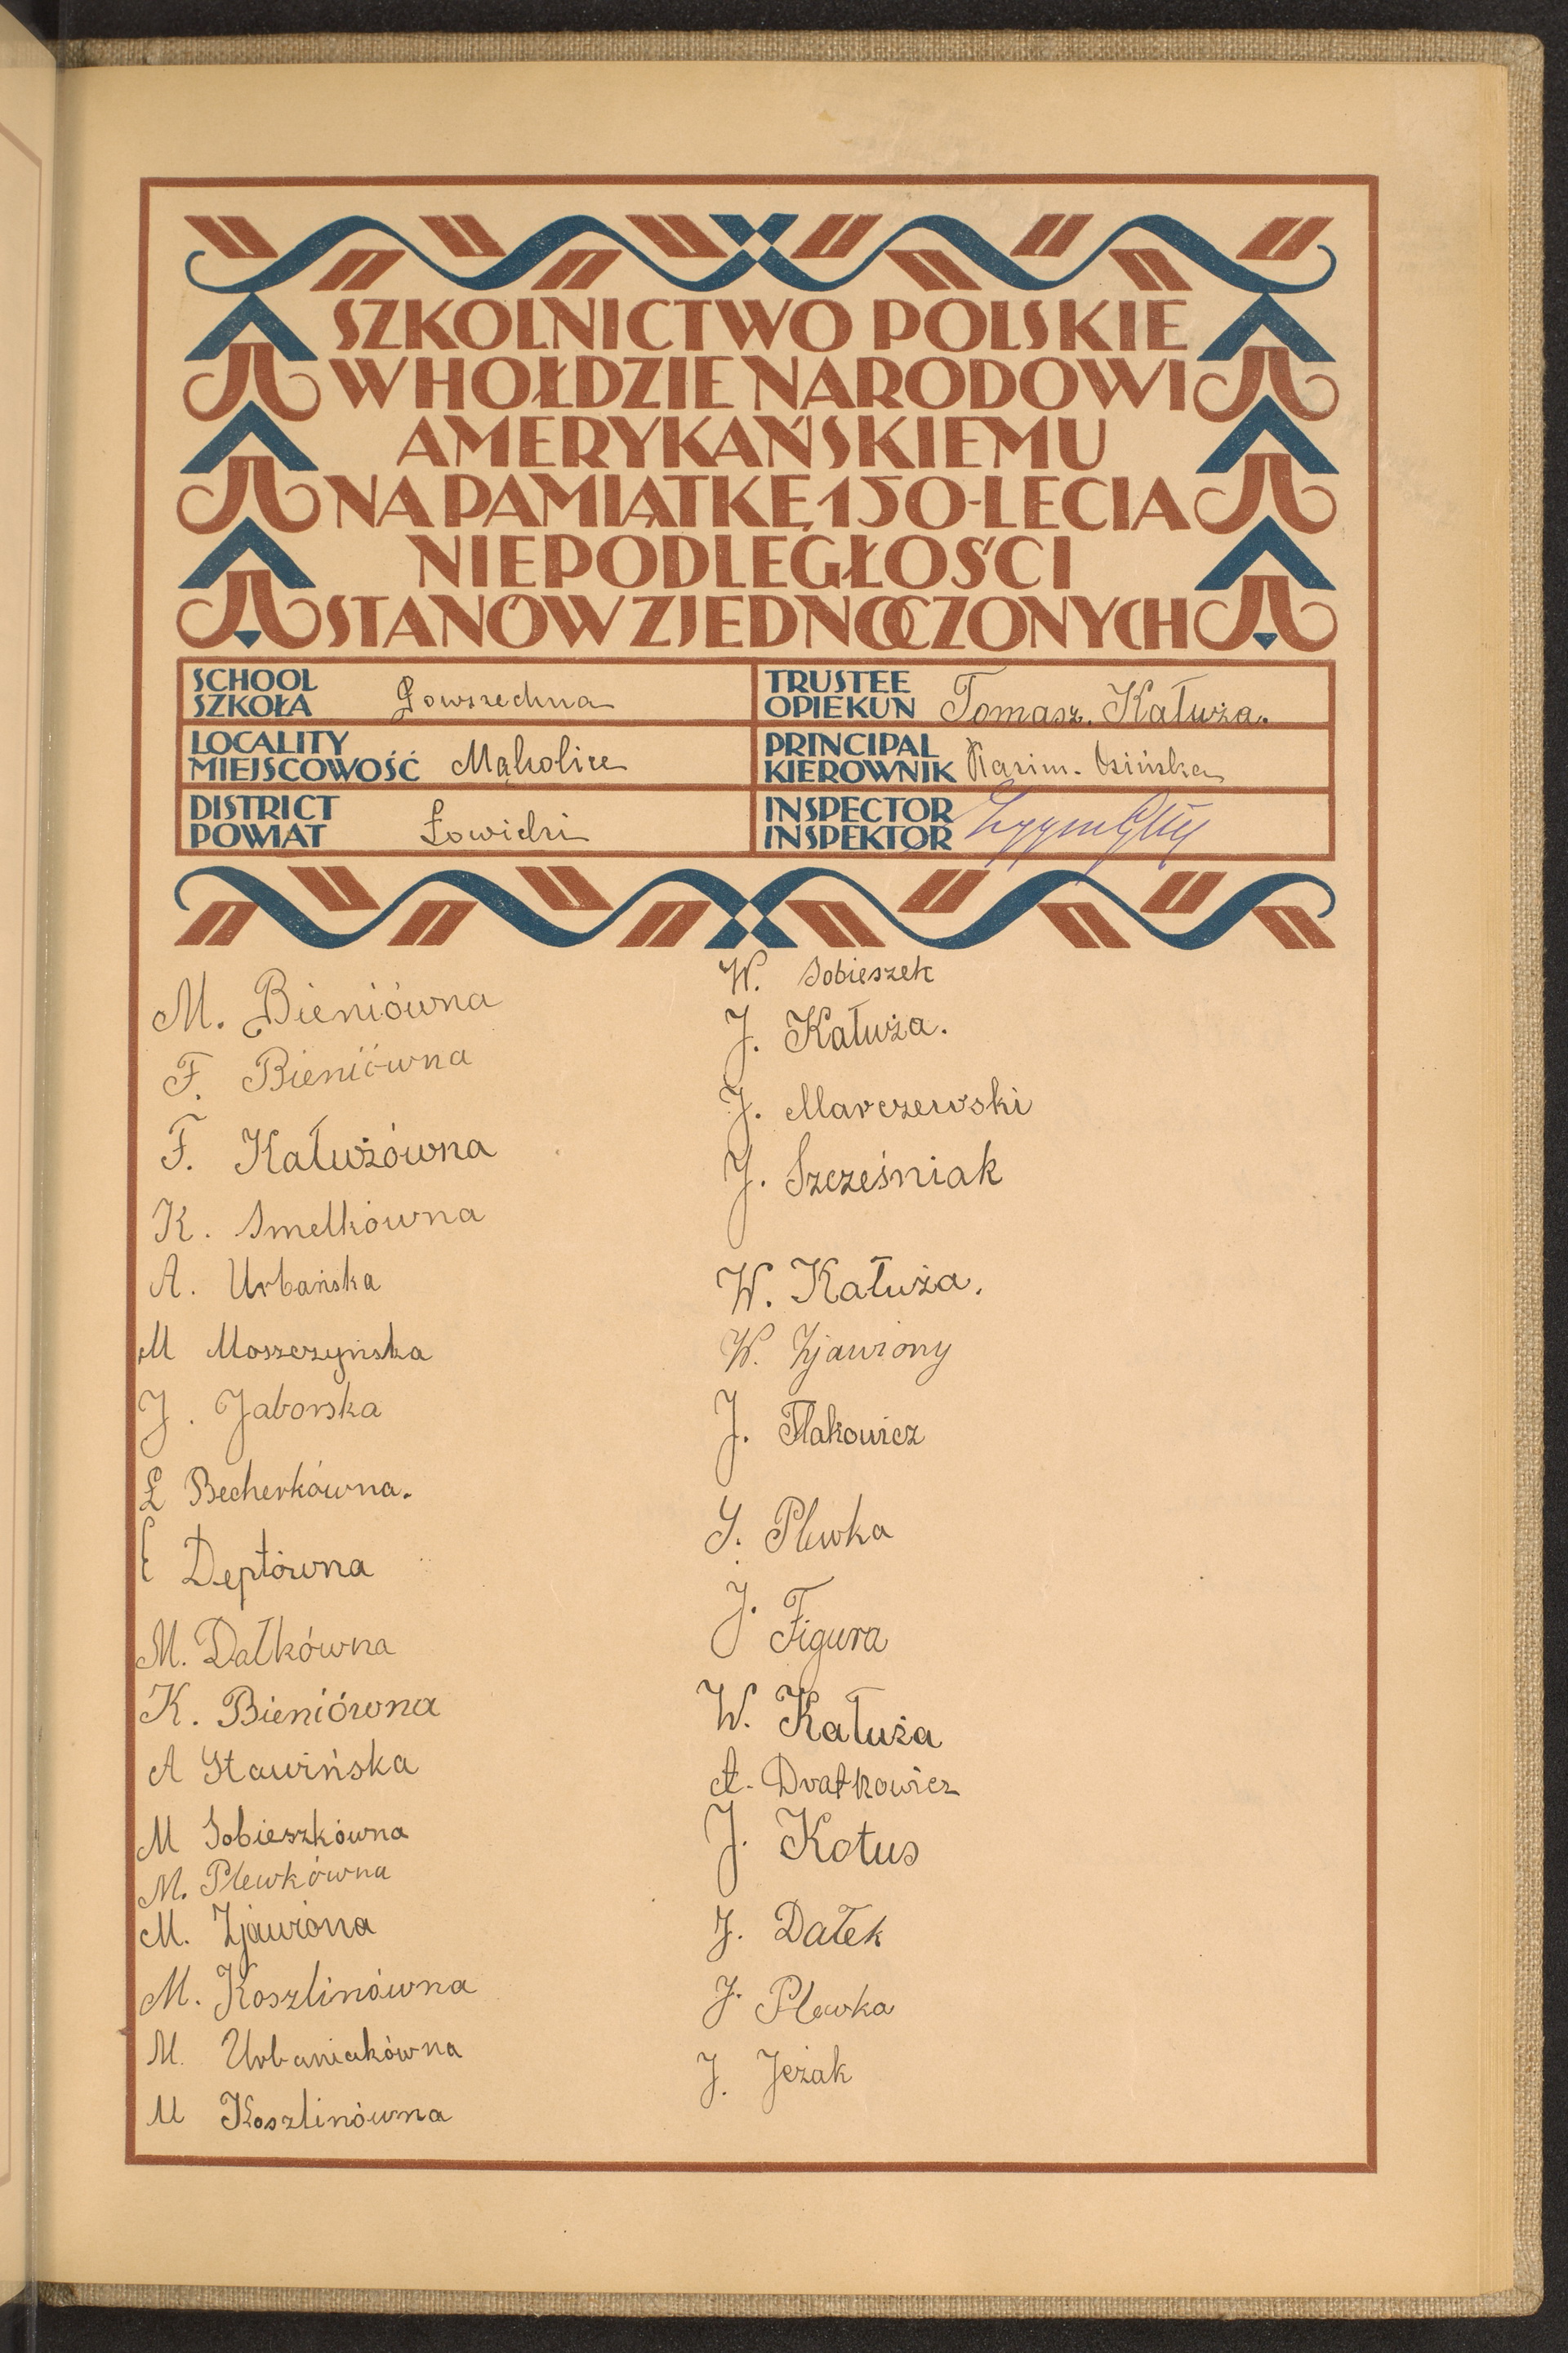 SZKOLNICTWO POLSKIE
W HOŁDZIE NARODOWI
AMERYKAŃSKIEMU
NA PAMIĄTKĘ 150-LECIA
NIEPODLEGŁOŚCI
STANÓW ZJEDNOCZONYCH
SCHOOL
SZKOŁA Powszechna
TRUSTEE
OPIEKUN Tomasz. Kałuża.
LOCALITY
MIEJSCOWOŚĆ Mąkolice
PRINCIPAL
KIEROWNIK Kazim. Osińska
DISTRICT
POWIAT Łowicki
INSPECTOR
INSPEKTOR
M. Bieniówna
F. Bieniówna
F. Kałużówna
K. Smelkówna
A. Urbańska
M Moszczyńska
J. Jaborska
Ł Becherkówna.
Deptówna
M. Dałkówna
K. Bieniówna
A Stawińska
M Sobieszkówna
M. Plewkówna
M. Zjawiona
M. Koszlinówna
M. Urbaniakówna
M Koszlinówna
W. Sobieszek
J. Kałuża.
J. Marczewski
J. Szcześniak
W. Kałuża.
W. Zjawiony
J. Flakowicz
S. Plewka
J. Figura
W. Kałuża
A. Dratkowicz
J. Kotus
J. Dałek
J. Plewka
J. Jeżak